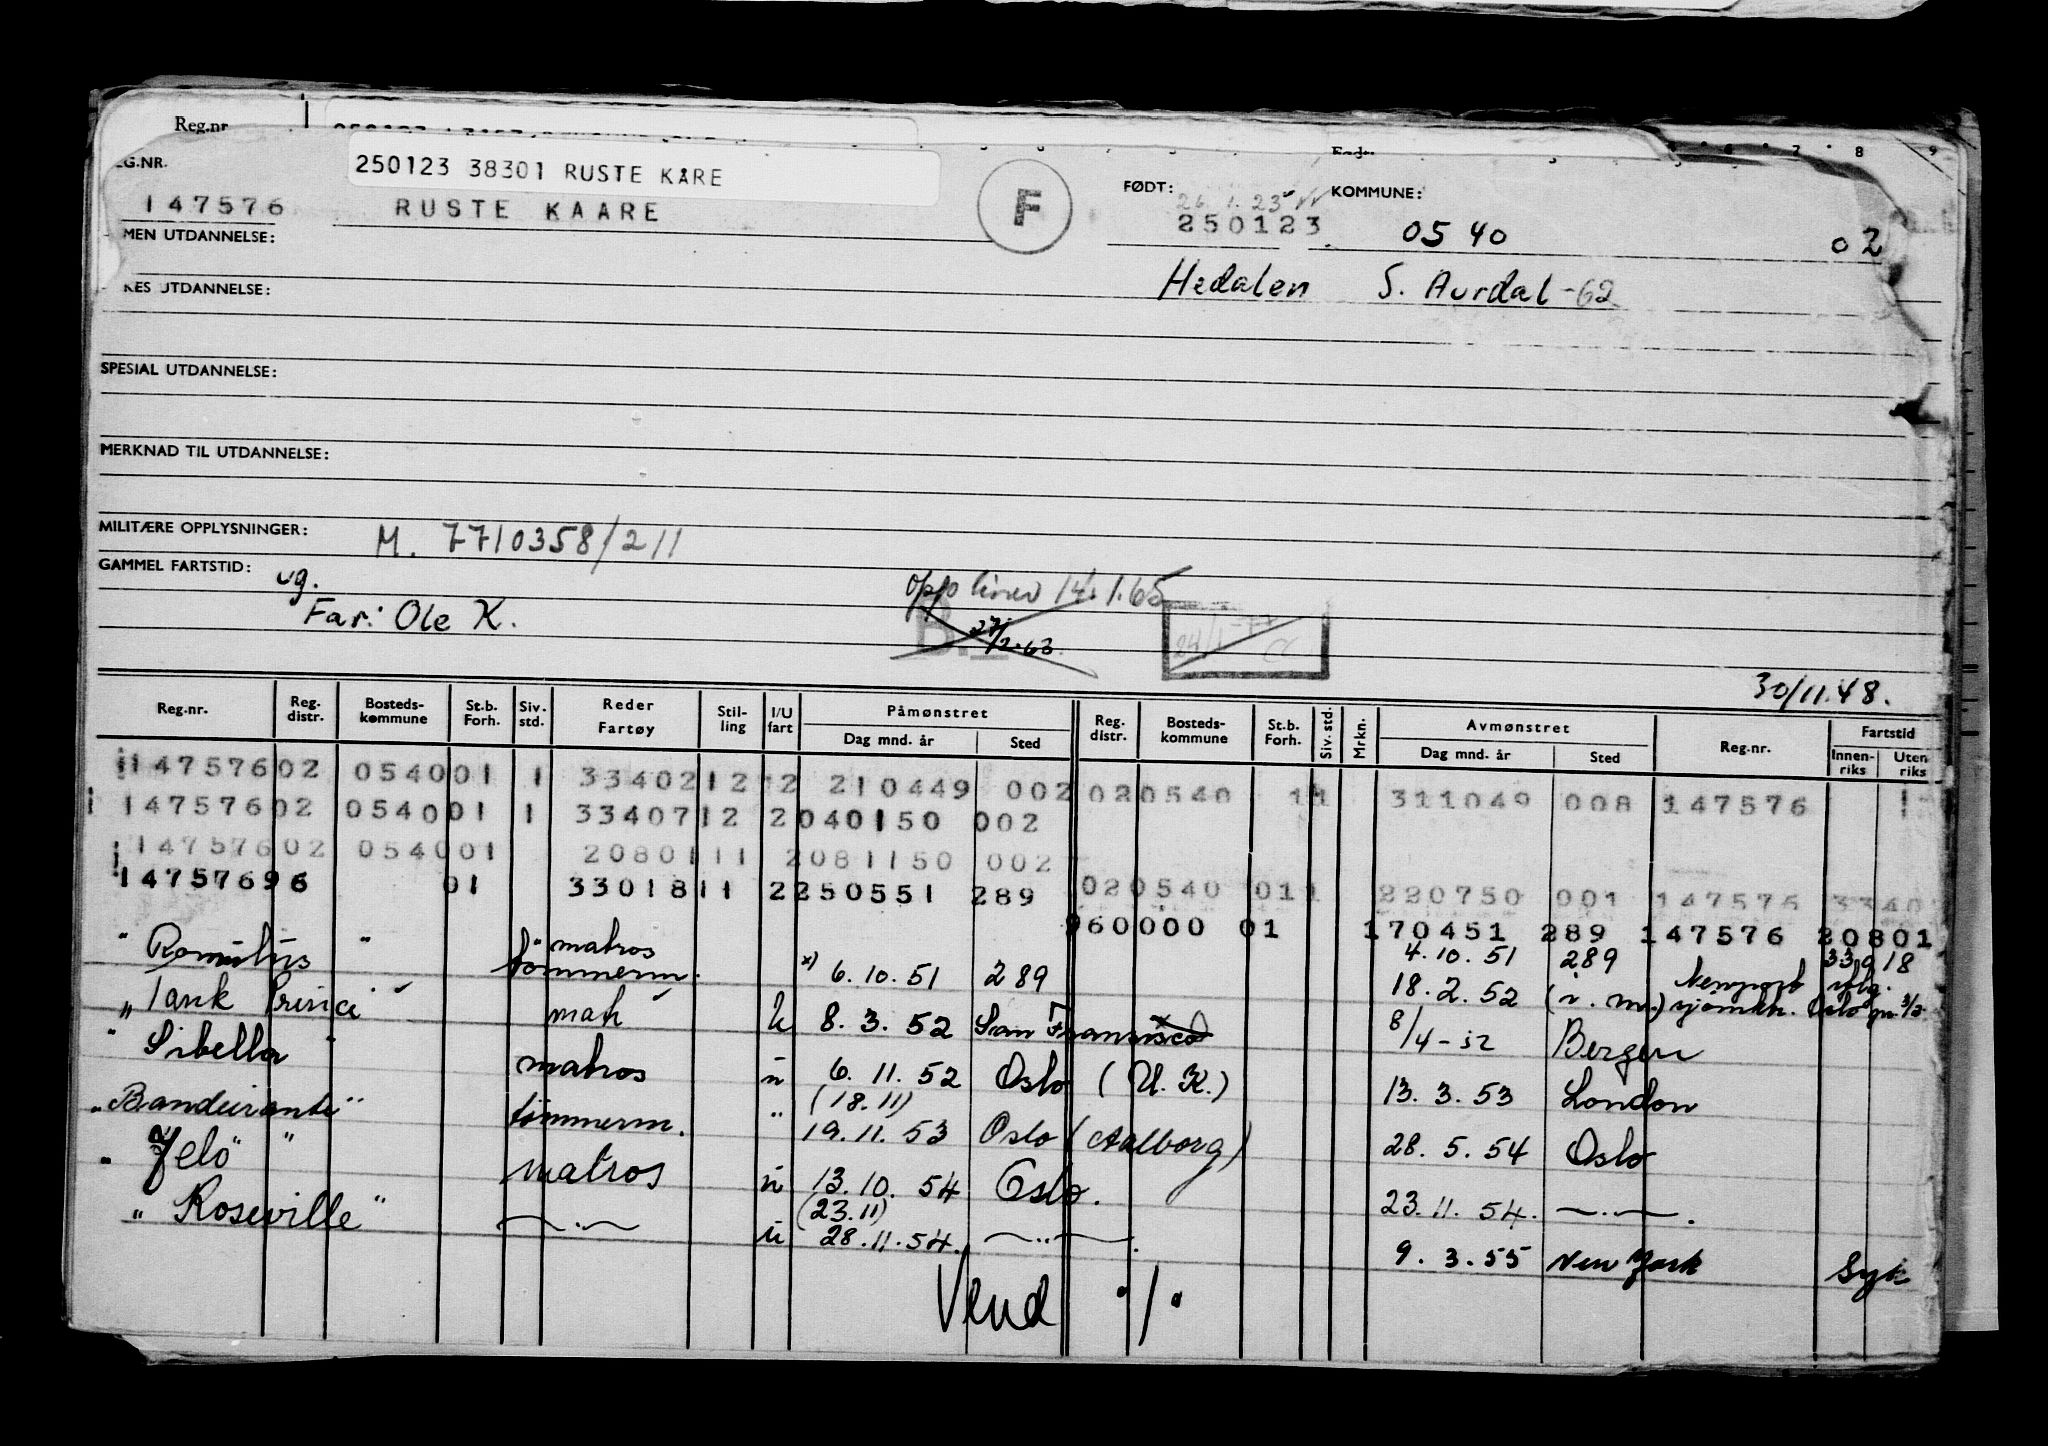 Reg.nr
REG.NR.
250123 38301 RUSTE KÅRE
147576 RUSTE KAARE
F
FØDT: 250123
KOMMUNE: 0540 02
MEN UTDANNELSE:
Hedalen S. Aurdal -62
KES UTDANNELSE:
SPESIAL UTDANNELSE:
MERKNAD TIL UTDANNELSE:
MILITÆRE OPPLYSNINGER: M. 7710358/211
GAMMEL FARTSTID: ug.
Far: Ole K.
14.1.65
27/2-63
30/11.48.
Reg.nr. Reg. distr. Bosteds-kommune St.b. Forh. Siv. std. Reder Fartøy Stil-ling I/U fart Påmønstret Dag mnd. år Sted Reg. distr. Bosteds-kommune St.b. Forh. Siv. std. Mrkn. Avmønstret Dag mnd. år Sted Reg.nr. Fartstid Innen-riks Uten riks
147576 02 0540 01 1 33402 12 2 210449 002 02 0540 11 311049 008 147576
147576 02 0540 01 1 33407 12 2 040150 002
147576 02 0540 01 20801 11 2 081150 002 02 0540 01 1 220750 001 147576 3340
147576 96 01 33018 11 2 250551 289 960000 01 170451 289 147576 20801
" Romulus " matros tømmerm. x) 6.10.51 289 4.10.51 289 33018
18.2.52 (i. m.) Newport
" Tank Princi matr. u 8.3.52 San Fransisco 8/4-52 Bergen
" Sibella " matros u 6.11.52 Oslo (U.K.) 13.3.53 London
(18.11)
"Bandeirante" tømmerm. " 19.11.53 Oslo (Aalborg) 28.5.54 Oslo
" Jelø " matros u 13.10.54 Oslo. 23.11.54.
(23.11)
" Roseville " u 28.11.54. 9.3.55 New York Syk
Vend ./.